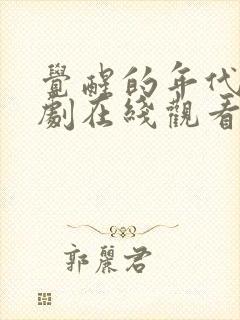 覺醒的年代
劇在綫觀看
郭麗君